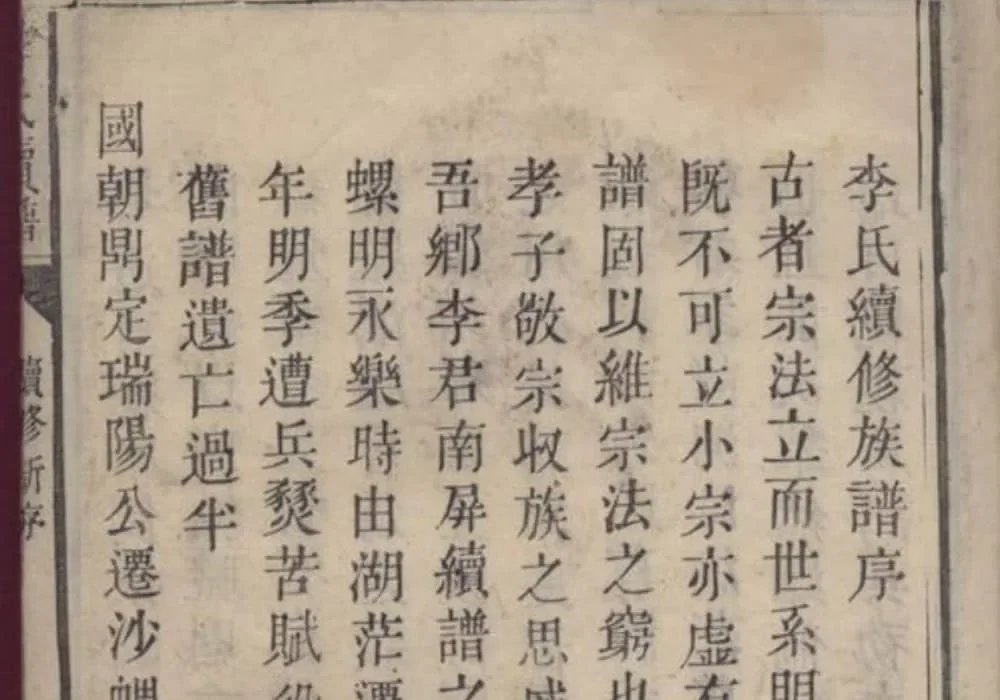 李氏續修族譜序
古者宗法立而世系明
既不可立小宗亦虛有
譜固以維宗法之窮也
孝子敬宗收族之思
吾鄉李君南屏續譜之
螺明永樂時由湖茫遷
年明季遭兵燹苦賦役
舊譜遺亡過半
國朝鼎定瑞陽公遷沙螺
續修新序